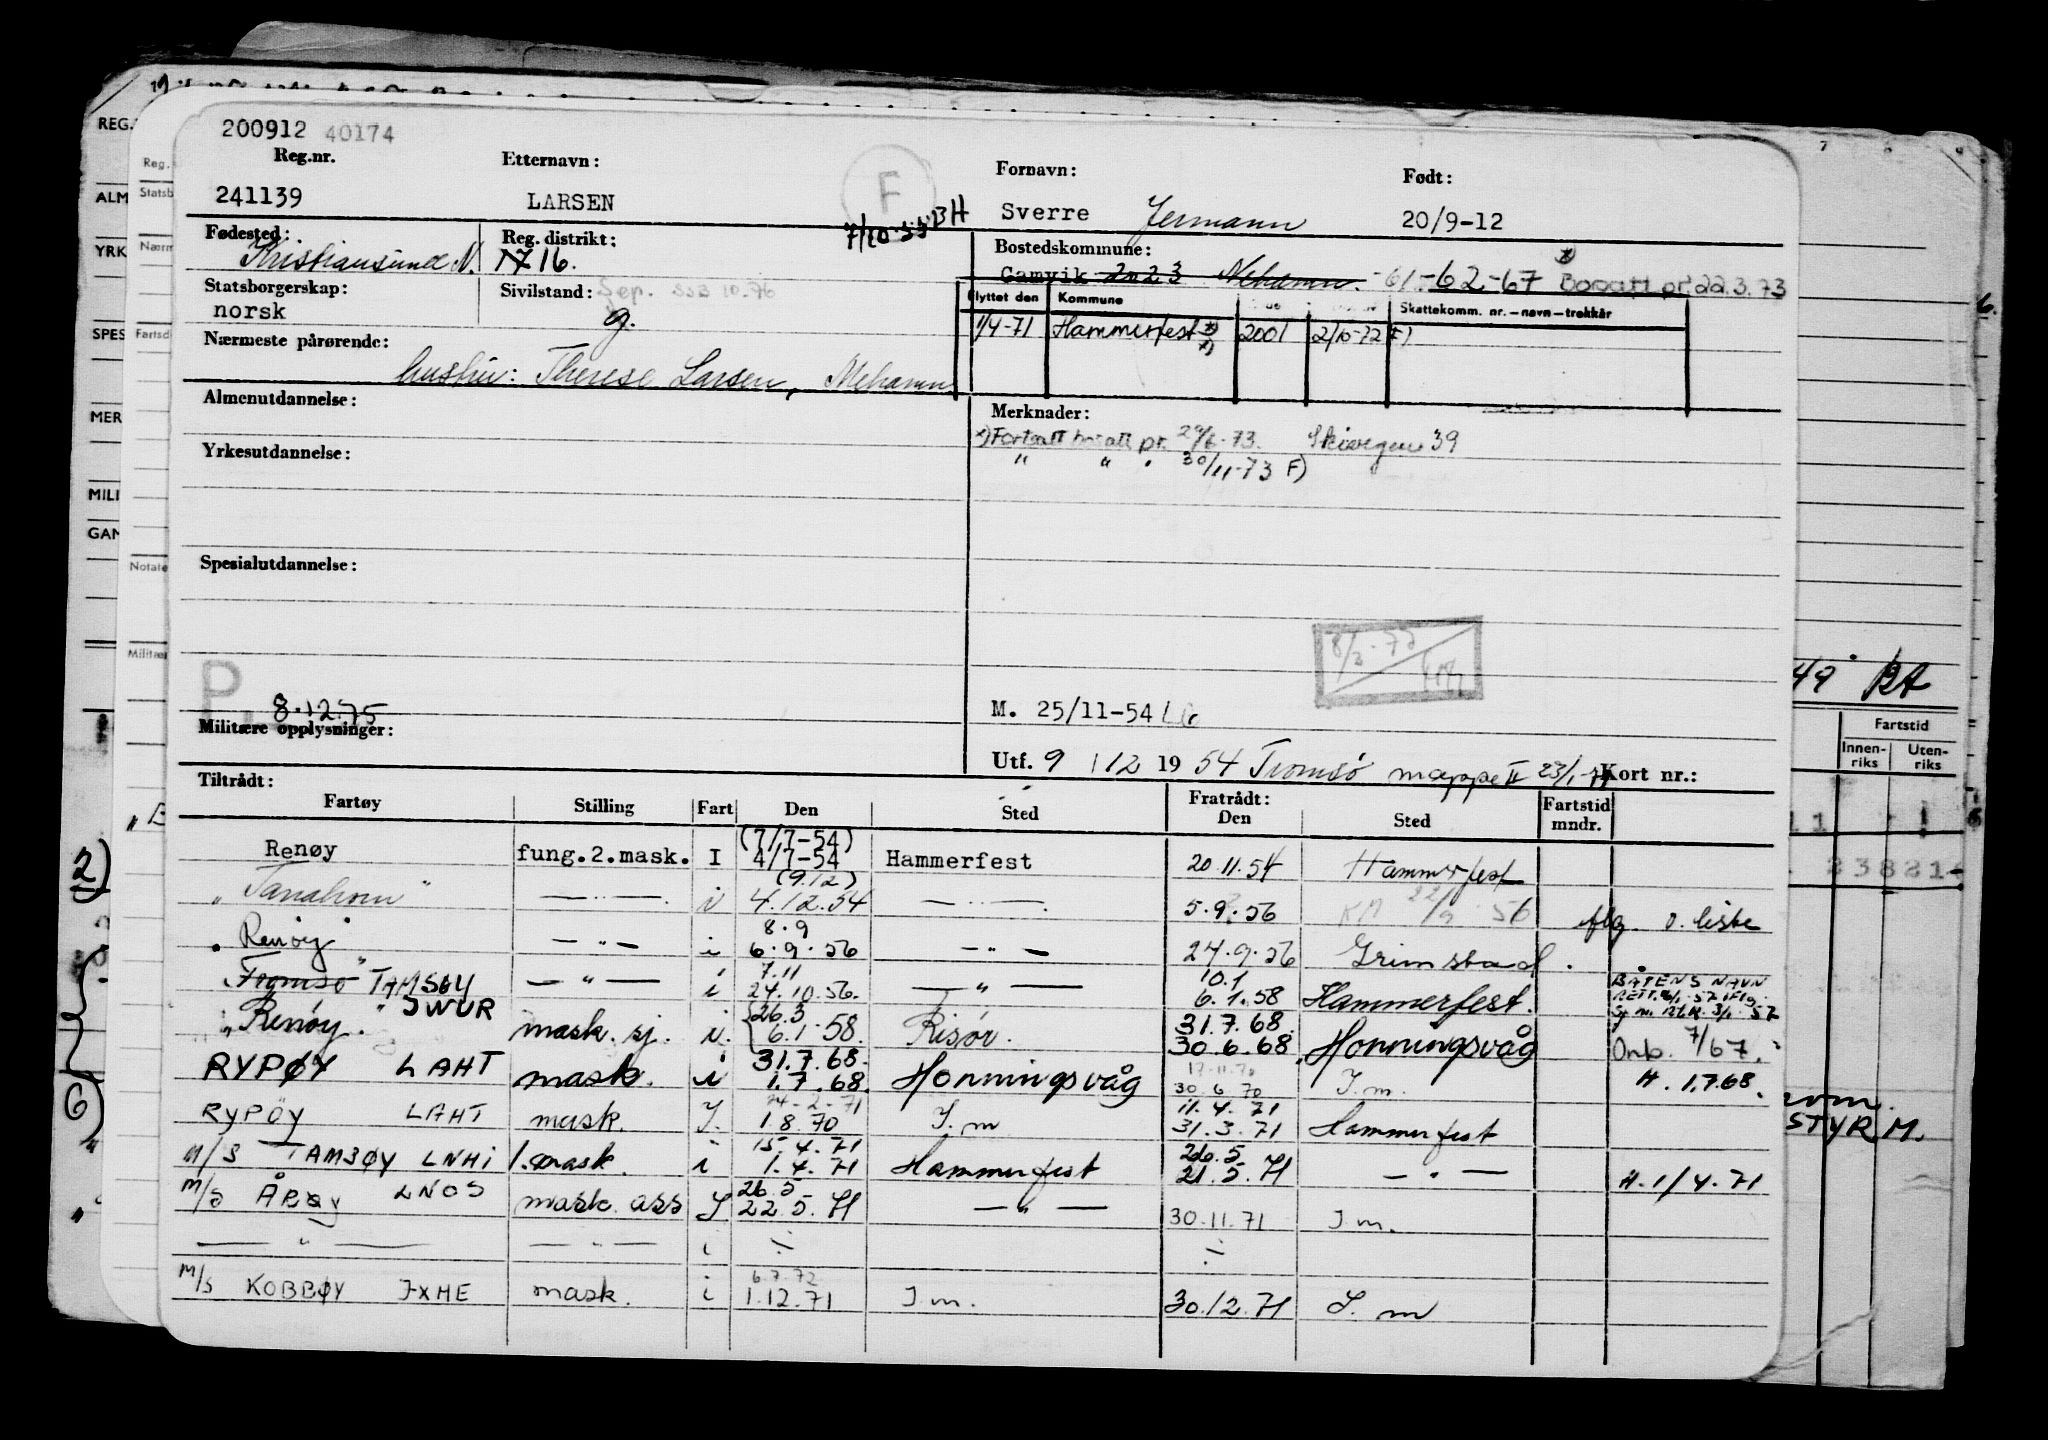 200912 40174
Reg.nr.
Etternavn:
Fornavn:
Født:
241139
LARSEN
F
7/10.55 BH
Sverre Jermann
20/9-12
Fødested:
Kristiansund N.
Reg. distrikt:
N 16.
Bostedskommune:
Gamvik 2023 Mehamn -61-62-67 Bosatt pr. 22.3.73
Statsborgerskap:
norsk
Sivilstand: Sep. SSB 10.76
g.
Flyttet den
Kommune
Skattekomm. nr.—navn—trekkår
1/4-71
Hammerfest
2001
2/10-72 F)
Nærmeste pårørende:
hustru: Therese Larsen, Mehamn
Almenutdannelse:
Merknader:
x) Fortsatt bosatt pr. 29/6-73. Skivegen 39
" " " 30/11-73 F)
Yrkesutdannelse:
Spesialutdannelse:
P.
8.12.75
Militære opplysninger:
M. 25/11-54
Utf. 9 /12 1954 Tromsø mappe II
Kort nr.:
Tiltrådt:
Fartøy
Stilling
Fart
Den
Sted
Fratrådt:
Den
Sted
Fartstid mndr.
Renøy fung.2.mask. I (7/7-54) 4/7-54 Hammerfest 20.11.54 Hammerfest
"Tanahorn" — " — i (9.12) 4.12.54 — " — 5.9.56 22/9 56 o. liste
"Renøy" — " — i 8.9 6.9.56 — " — 24.9.56 Grimstad.
Tromsø TAMSØY — " — i 7.11 24.10.56. — " — 10.1 6.1.58 Hammerfest. BÅTENS NAVN
"Renøy." JWUR mask. sj. i. 26.3 6.1.58. Risør. 31.7.68. 30.6.68 Honningsvåg Omb. 7/67.
RYPØY LAHT mask. i 31.7.68. 1.7.68. Honningsvåg 17-11.70 30 6 70 I.m. H. 1.7.68.
RYPÖY LAHT mask. I. 14-2-71 1.8.70 I.m 11.4.71 31.3.71 Hammerfest
M/S TAMSØY LNHI 1. mask. i 15.4.71 1.4.71 Hammerfest 26.5 21.5.71 — " — H. 1/4.71
M/S ÅRØY LNOS mask. ass I 26.5 22.5.71 — " — 30.11.71 I m.
— " — — " — i ÷ ÷
M/S KOBBØY JXHE mask. i 6.7.72 1.12.71 I m. 30.12.71 I. m
REG.
ALM
YRK
SPES
MER
MILI
GAN
Reg.
Statsb
Nærm
Fartsd
Notate
Militær
2)
6)
49 BA
Fartstid
Innen-riks
Uten-riks
STYRM.